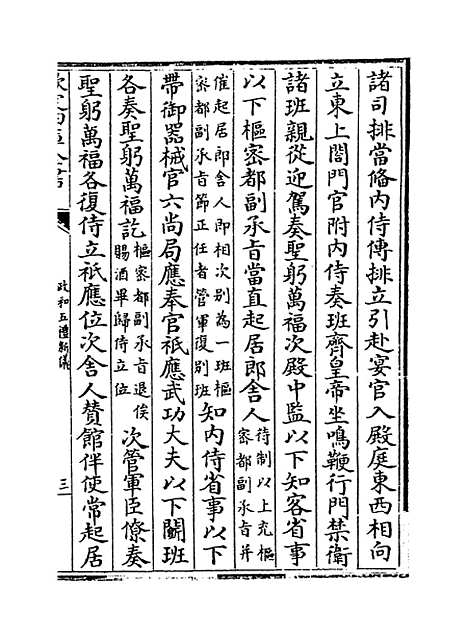 諸司排當備内侍傳排立引赴宴官入殿庭東西相向
立東上閤門官附内侍奏班齊皇帝坐鳴鞭行門禁衛
諸班親從迎駕奏聖躬萬福次殿中監以下知客省事
以下樞密都副承㫖當直起居郎舍人
待制以上充樞
密都副承㫖并
催起居郎舍人即相次别為一班樞
密都副承㫖節正任者管軍復别班
知内侍省事以下
帶御器械官六尚局應奉官祗應武功大夫以下闗班
各奏聖躬萬福訖
樞密都副承㫖退俟
賜酒畢歸侍立位
次管軍臣僚奏
聖躬萬福各復侍立祗應位次舍人賛館伴使常起居
政和五禮新儀
三